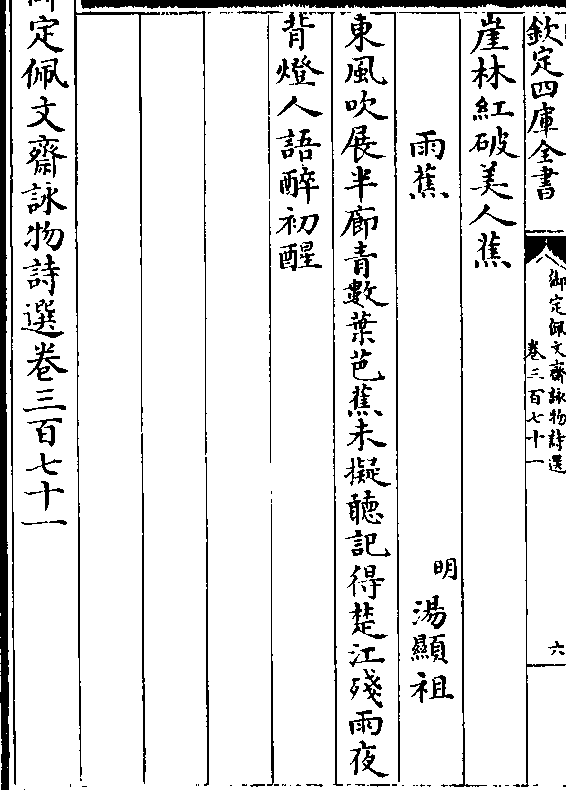 欽定四庫全書
御定佩文齋詠物詩選
卷三百七十一
六
崖林紅破美人蕉
雨蕉
明
湯顯祖
東風吹展半廊青數葉芭蕉未擬聽記得楚江殘雨夜
背燈人語醉初醒
御定佩文齋詠物詩選卷三百七十一